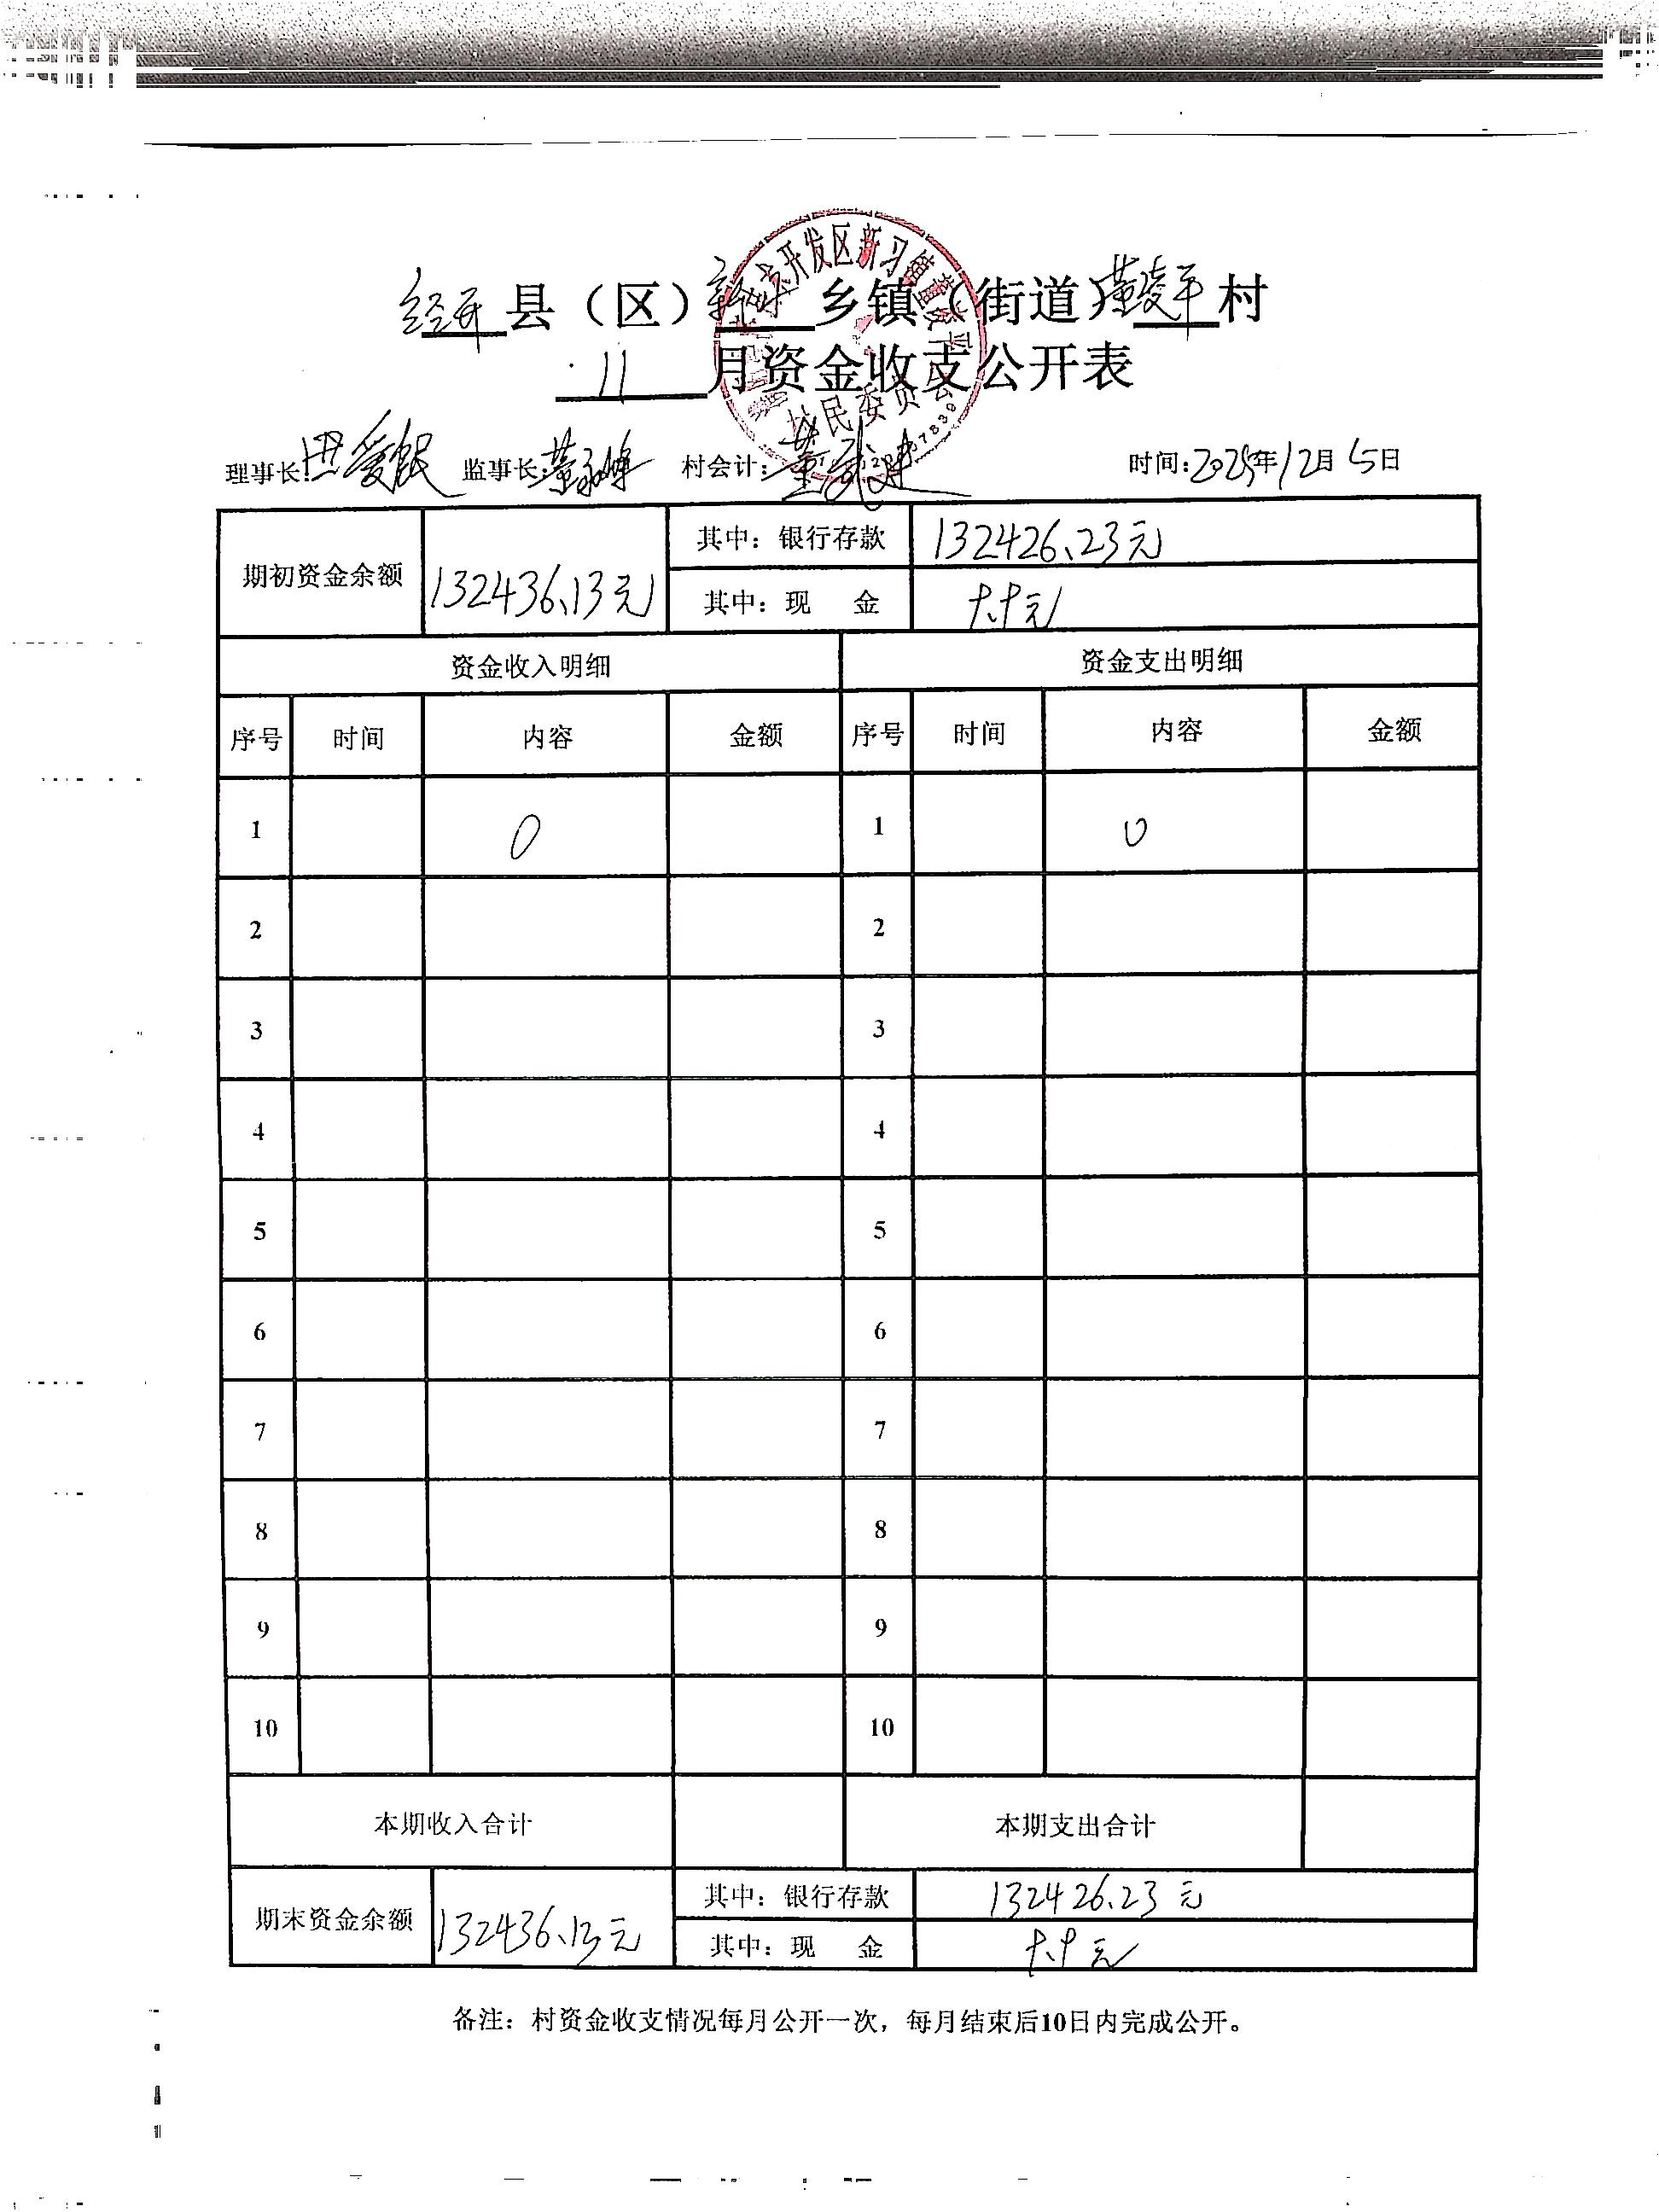 经开县（区）新习乡镇（街道）董凌平村
11月资金收支公开表
理事长：田爱民 监事长：董 村会计：董武 时间：2025年12月5日
期初资金余额 132436.13元 其中：银行存款 132426.23元
其中：现 金 9.9元
资金收入明细 资金支出明细
序号 时间 内容 金额 序号 时间 内容 金额
1 0 1 0
2 2
3 3
4 4
5 5
6 6
7 7
8 8
9 9
10 10
本期收入合计 本期支出合计
期末资金余额 132436.13元 其中：银行存款 132426.23元
其中：现 金 9.9元
备注：村资金收支情况每月公开一次，每月结束后10日内完成公开。